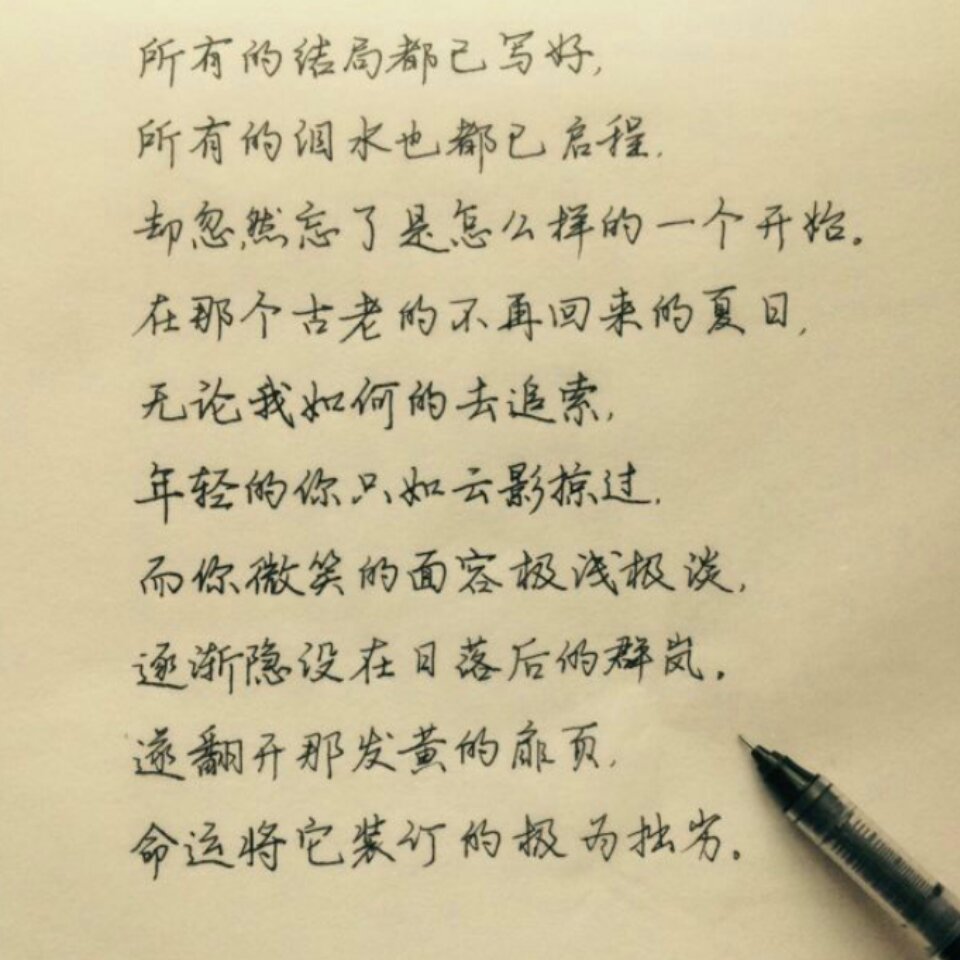 所有的结局都已写好,
所有的泪水也都已启程.
却忽然忘了是怎么样的一个开始。
在那个古老的不再回来的夏日,
无论我如何的去追索,
年轻的你只如云影掠过.
而你微笑的面容极浅极淡,
逐渐隐没在日落后的群岚。
遂翻开那发黄的扉页,
命运将它装订的极为拙劣。